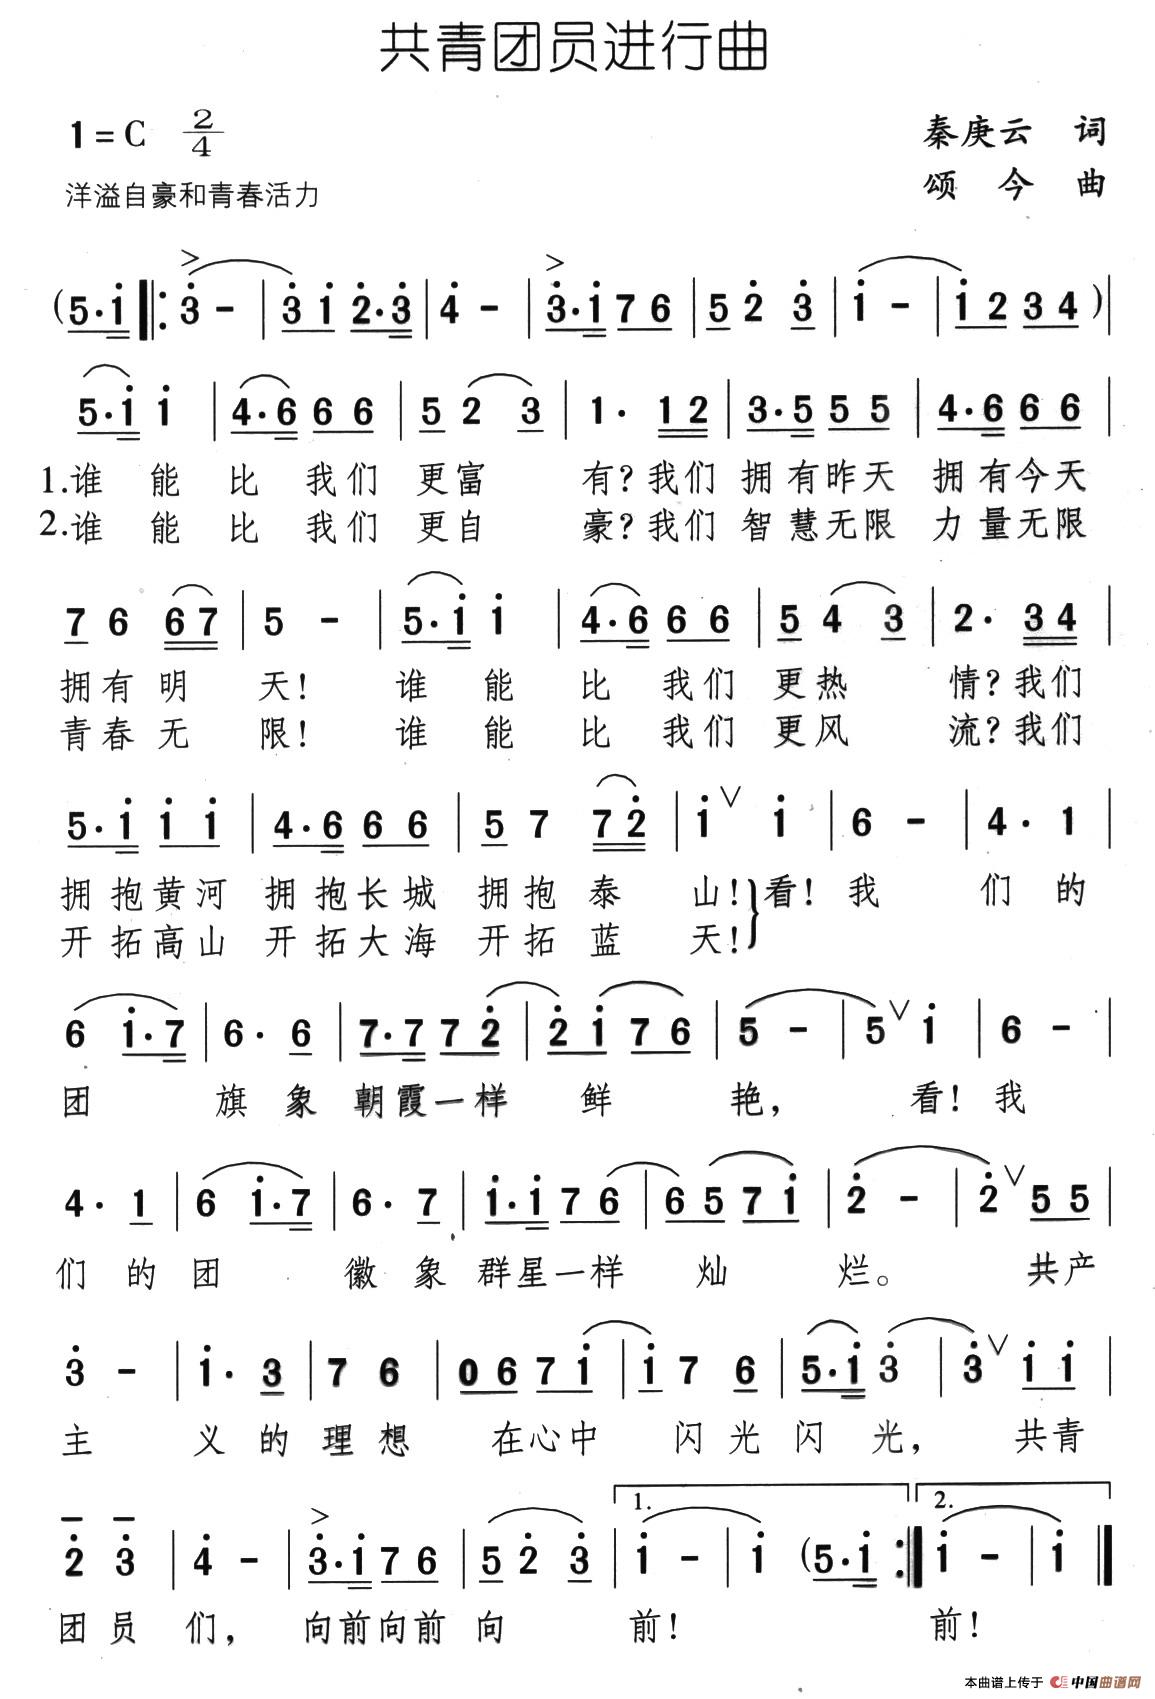 共青团员进行曲
1=C 2/4
秦庚云 词
洋溢自豪和青春活力
颂今 曲
(5·i ‖: 3 - | 3 i 2·3 | 4 - | 3·i 7 6 | 5 2 3 | i - | i 2 3 4 ) |
5·i i | 4·6 6 6 | 5 2 3 | 1· 1 2 | 3·5 5 5 | 4·6 6 6 |
1.谁 能 比 我们 更富 有?我们 拥有昨天 拥有今天
2.谁 能 比 我们 更自 豪?我们 智慧无限 力量无限
7 6 6 7 | 5 - | 5·i i | 4·6 6 6 | 5 4 3 | 2· 3 4 |
拥有 明 天! 谁 能 比 我们 更热 情?我们
青春 无 限! 谁 能 比 我们 更风 流?我们
5·i i i | 4·6 6 6 | 5 7 7 2 | i ∨ i | 6 - | 4· 1 |
拥抱黄河 拥抱长城 拥抱泰 山!}看! 我 们 的
开拓高山 开拓大海 开拓蓝 天!
6 i·7 | 6· 6 | 7·7 7 2 | 2 i 7 6 | 5 - | 5 ∨ i | 6 - |
团 旗 象 朝霞一样 鲜 艳, 看! 我
4· 1 | 6 i·7 | 6· 7 | i·i 7 6 | 6 5 7 i | 2 - | 2 ∨ 5 5 |
们 的 团 徽 象 群星一样 灿 烂。 共产
3 - | i· 3 | 7 6 | 0 6 7 i | i 7 6 | 5·i 3 | 3 ∨ i i |
主 义 的 理 想 在心中 闪光闪 光, 共青
1. 2.
2 3 | 4 - | 3·i 7 6 | 5 2 3 | i - | i (5·i :‖ i - | i ‖
团 员 们, 向前向前 向 前! 前!
本曲谱上传于 中国曲谱网